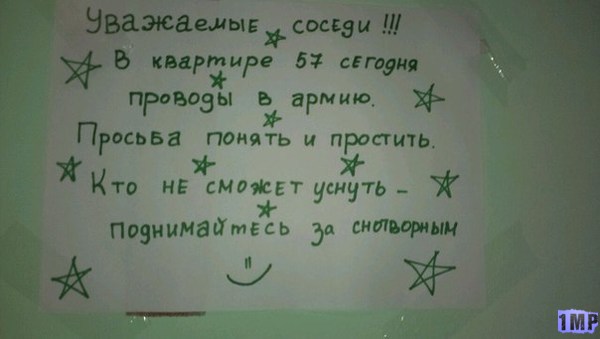 Уважаемые соседи !!!
В квартире 57 сегодня
проводы в армию.
Просьба понять и простить.
Кто не сможет уснуть –
поднимайтесь за снотворным
1MP